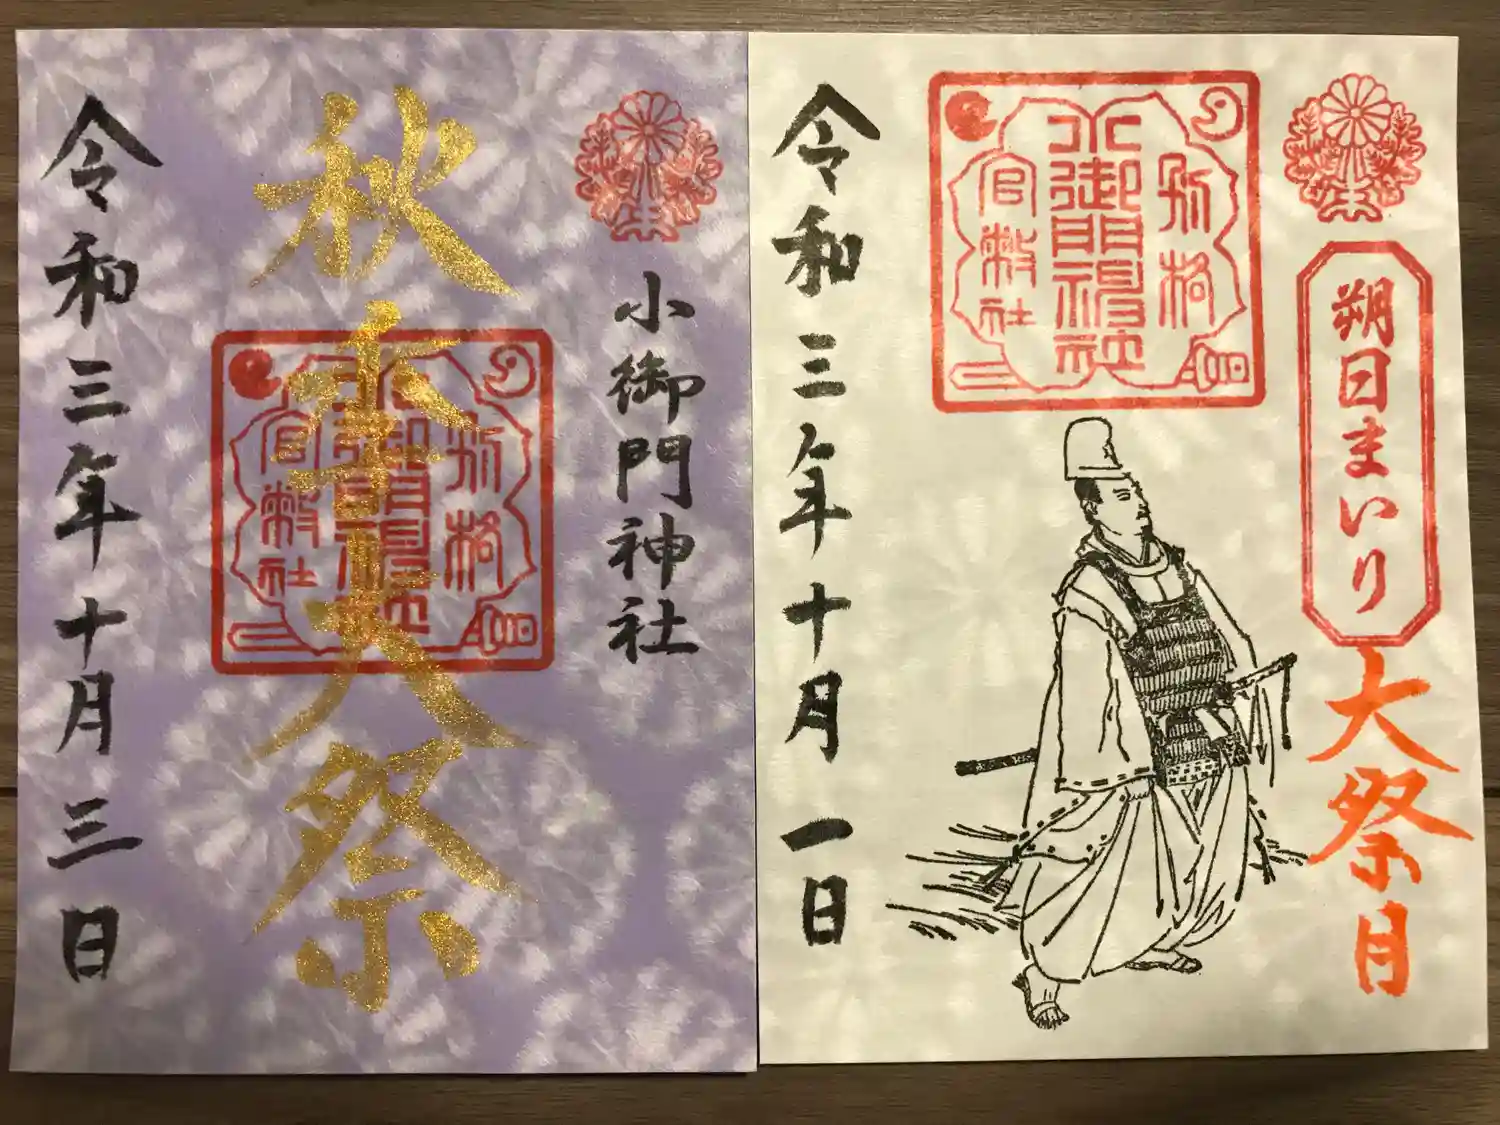 朔日まいり
大祭月
別格
小御門神社
官幣社
令和三年十月一日
小御門神社
秋季大祭
別格
小御門神社
官幣社
令和三年十月三日